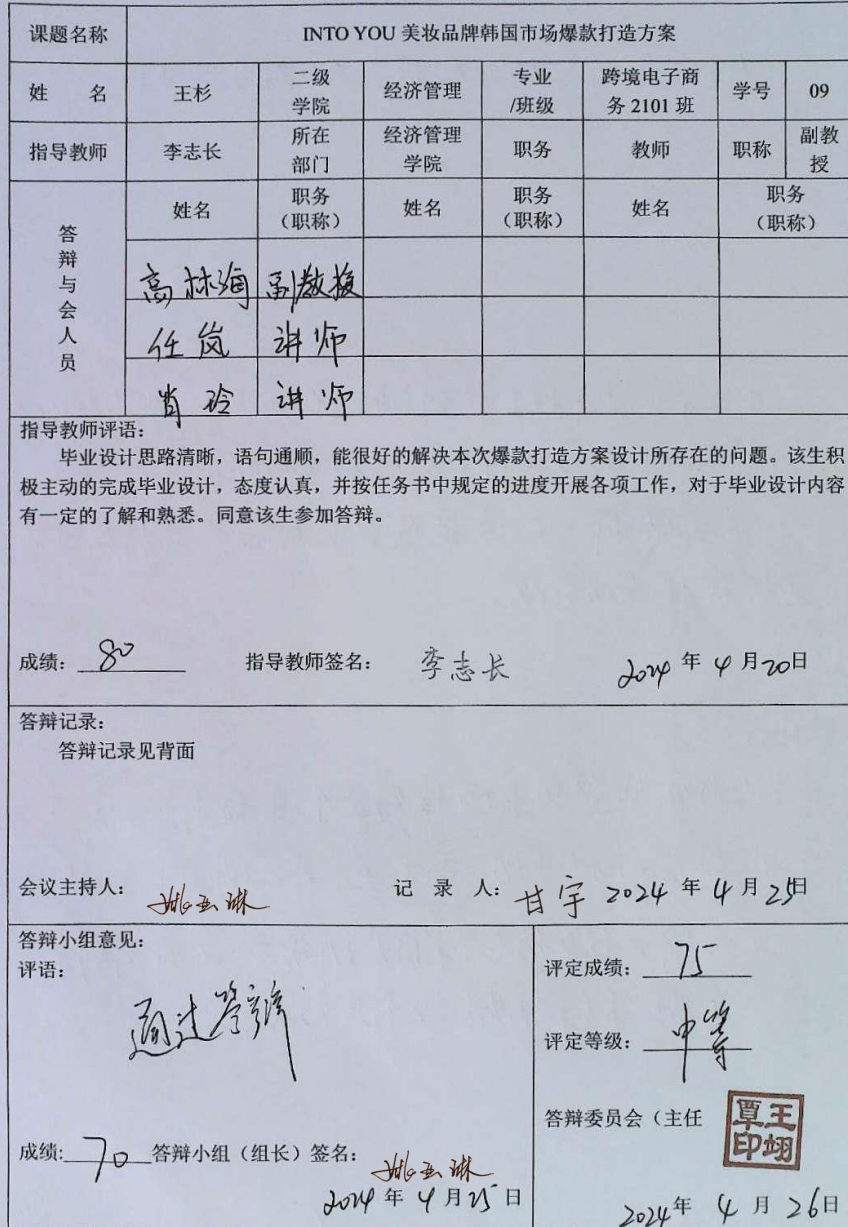 课题名称 INTO YOU 美妆品牌韩国市场爆款打造方案
姓 名 王杉 二级学院 经济管理 专业/班级 跨境电子商务 2101 班 学号 09
指导教师 李志长 所在部门 经济管理学院 职务 教师 职称 副教授
答辩与会人员 姓名 职务（职称） 姓名 职务（职称） 姓名 职务（职称）
高林海 副教授
任岚 讲师
肖玲 讲师
指导教师评语：
毕业设计思路清晰，语句通顺，能很好的解决本次爆款打造方案设计所存在的问题。该生积
极主动的完成毕业设计，态度认真，并按任务书中规定的进度开展各项工作，对于毕业设计内容
有一定的了解和熟悉。同意该生参加答辩。
成绩：80 指导教师签名： 李志长 2024 年 4 月 20 日
答辩记录：
答辩记录见背面
会议主持人： 姚亚琳 记 录 人： 甘宇 2024 年 4 月 25 日
答辩小组意见：
评语：
通过答辩
成绩:70 答辩小组（组长）签名： 姚亚琳
2024 年 4 月 25 日
评定成绩： 75
评定等级： 中等
答辩委员会（主任
王翊覃印
2024 年 4 月 26 日